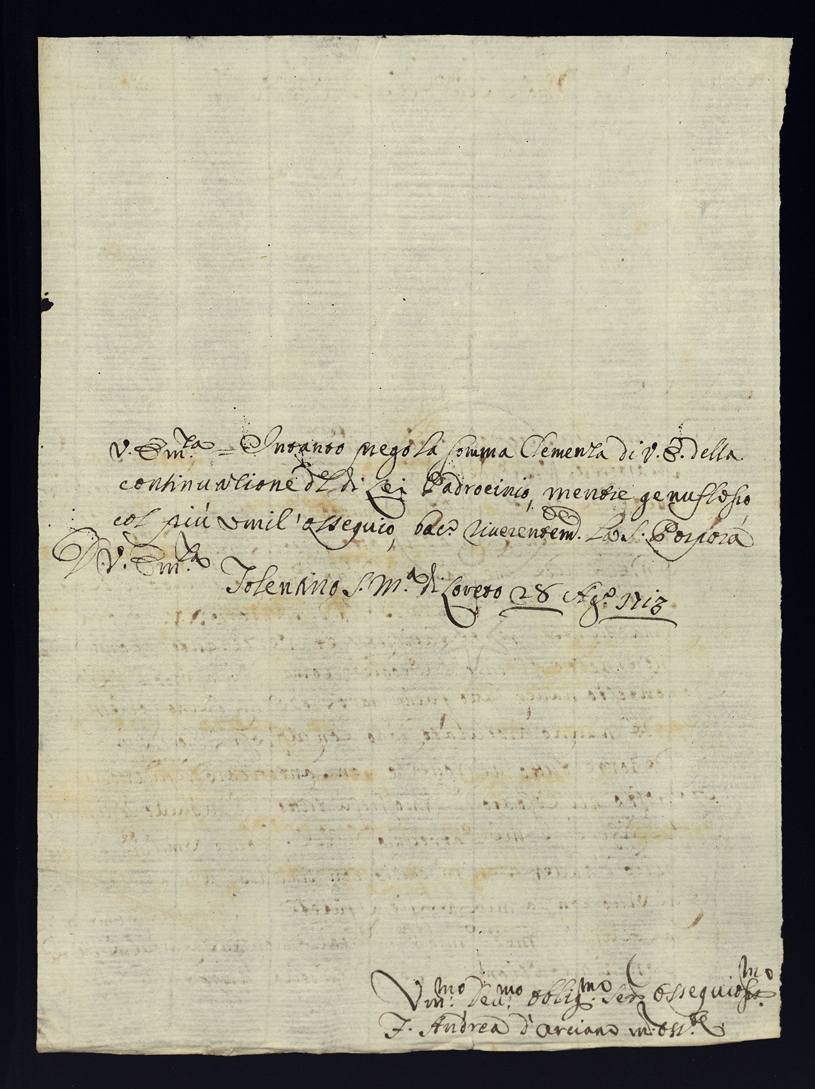 V. Em.za = Intanto prego la somma Clemenza di V. E. della
continuatione del di Lei Padrocinio, mentre genuflesso
col più umil' ossequio, bacº riverentem.e la S. Porpora
D V. Em.za
Tolentino S. M.a di Loreto 28 Ag.º 1713
Um.mo Deu.mo Oblig.mo Ser. Ossequios.mo
F. Andrea d'Arciano